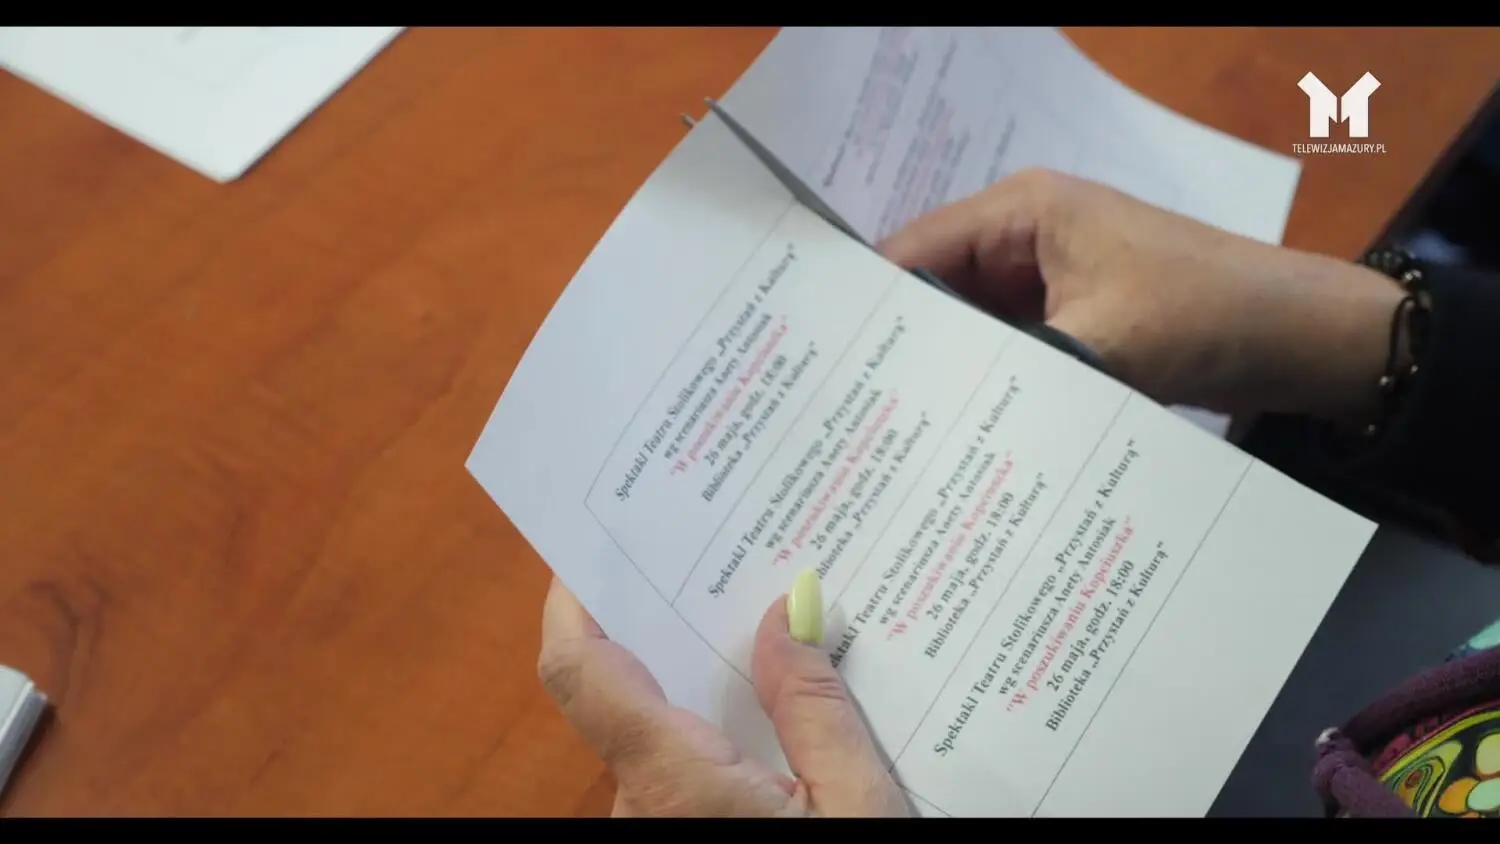 TELEWIZJAMAZURY.PL
Spektakl Teatru Stolikowego „Przystań z Kulturą"
wg scenariusza Anety Antosiak
"W poszukiwaniu Kopciuszka"
26 maja, godz. 18:00
Biblioteka „Przystań z Kulturą"
Spektakl Teatru Stolikowego „Przystań z Kulturą"
wg scenariusza Anety Antosiak
"W poszukiwaniu Kopciuszka"
26 maja, godz. 18:00
blioteka „Przystań z Kulturą"
ektakl Teatru Stolikowego „Przystań z Kulturą"
wg scenariusza Anety Antosiak
"W poszukiwaniu Kopciuszka"
26 maja, godz. 18:00
Biblioteka „Przystań z Kulturą"
Spektakl Teatru Stolikowego „Przystań z Kulturą"
wg scenariusza Anety Antosiak
"W poszukiwaniu Kopciuszka"
26 maja, godz. 18:00
Biblioteka „Przystań z Kulturą"